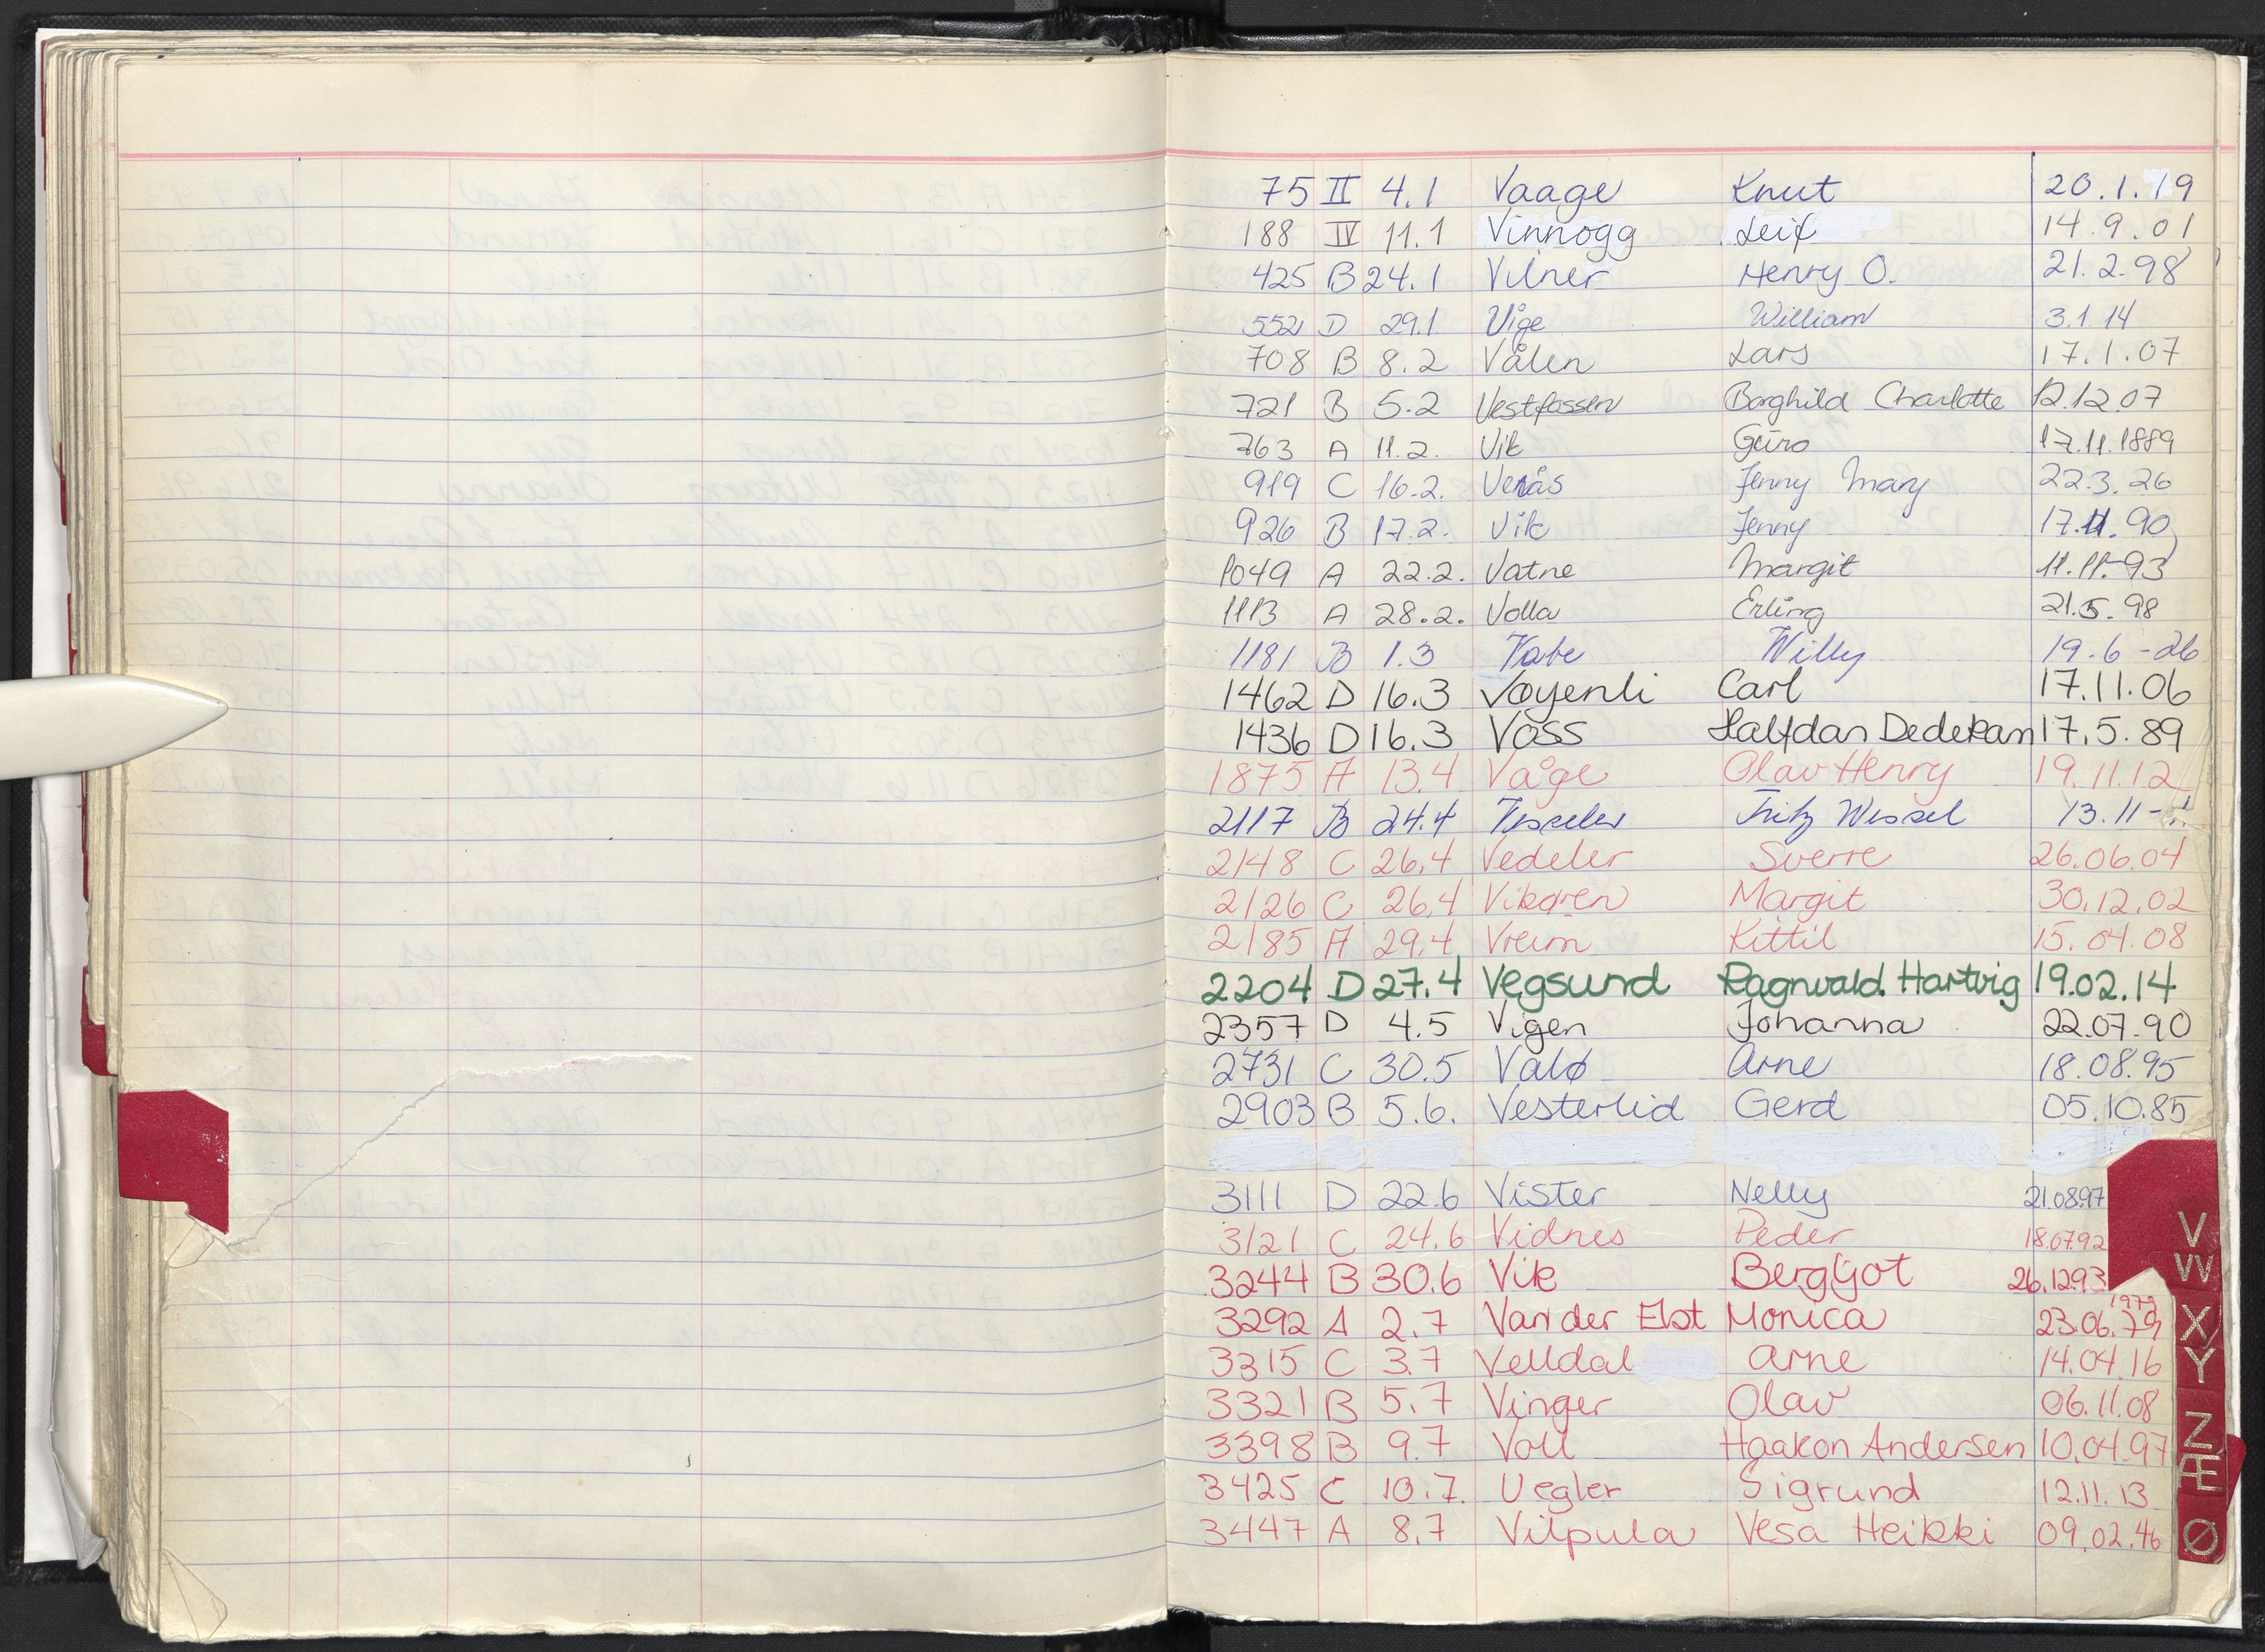 75 II 4.1 Vaage Knut 20.1.19
188 IV 11.1 Vinnogg Leif 14.9.01
425 B 24.1 Vilner Henry O. 21.2.98
552 D 29.1 Våge William 3.1.14
708 B 8.2 Vålen Lars 17.1.07
721 B 5.2 Vestfossen Borghild Charlotte 12.12.07
763 A 11.2. Vik Guro 17.11.1889
919 C 16.2. Venås Jenny Mary 22.3.26
926 B 17.2. Vik Jenny 17.11.90
1049 A 22.2. Vatne Margit 11.11.-93
1113 A 28.2. Volla Erling 21.5.98
1181 B 1.3 Willy 19.6-26
1462 D 16.3 Vøyenli Carl 17.11.06
1436 D 16.3 Voss Halfdan Dedekam 17.5.89
1875 A 13.4 Våge Olav Henry 19.11.12
2117 B 24.4 Fritz Wessel 13.11-
2148 C 26.4 Vedeler Sverre 26.06.04
2126 C 26.4 Vikøren Margit 30.12.02
2185 A 29.4 Vreim Kittil 15.04.08
2204 D 27.4 Vegsund Ragnvald Hartvig 19.02.14
2357 D 4.5 Vigen Johanna 22.07.90
2731 C 30.5 Valø Arne 18.08.95
2903 B 5.6. Vesterlid Gerd 05.10.85
3111 D 22.6 Vister Nelly 21.08.97
3121 C 24.6 Vidnes Peder 18.07.92
3244 B 30.6 Vik Bergljot 26.12.93
1979
3292 A 2.7 Van der Elst Monica 23.06.79
3315 C 3.7 Velldal Arne 14.04.16
3321 B 5.7 Vinger Olav 06.11.08
3398 B 9.7 Voll Haakon Andersen 10.04.97
3425 C 10.7. Vegler Sigrund 12.11.13
3447 A 8.7 Vilpula Vesa Heikki 09.02.46
V
W
X
Y
Z
Æ
Ø